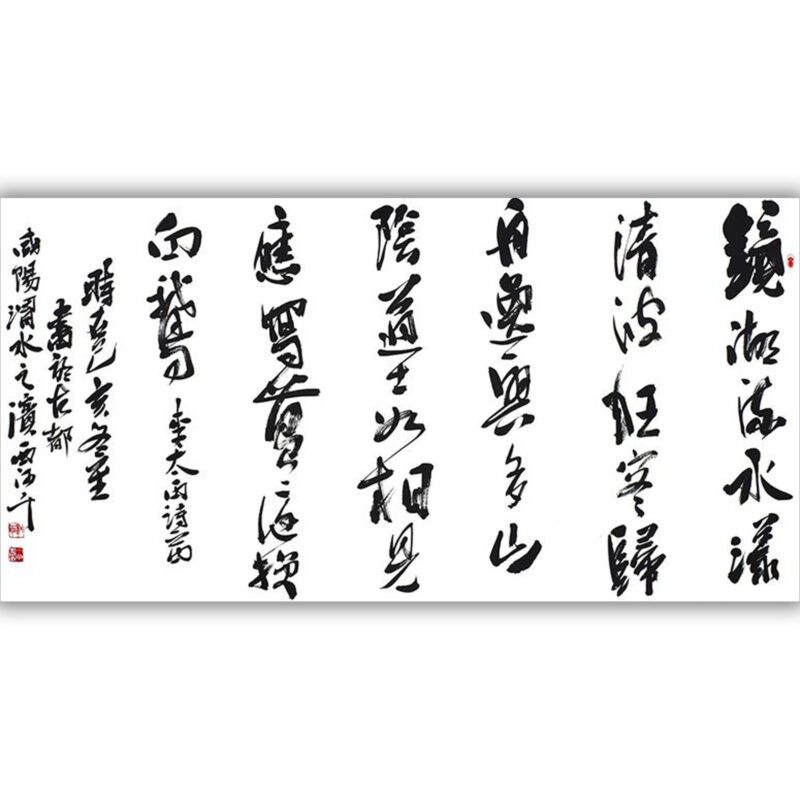 鏡湖流水漾
清波狂客歸
舟逸興多山
陰道士如相見
應寫黃庭換
白鵝 李太白詩一首
時在己亥冬至
書於古都
咸陽渭水之濱